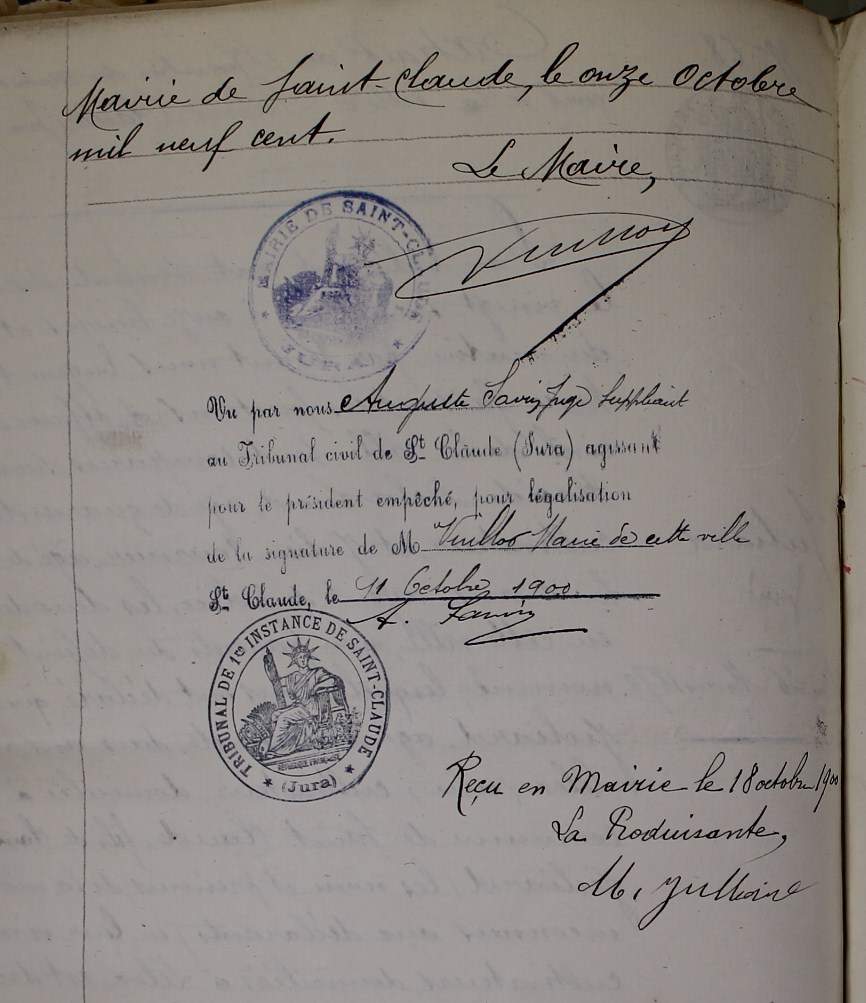 Mairie de Saint-Claude, le onze Octobre
mil neuf cent.
Le Maire,
MAIRIE DE SAINT-CLAUDE
JURA
Vu par nous Auguste Savin Juge Suppléant
au Tribunal civil de St. Claude (Jura) agissant
pour le président empêché, pour légalisation
de la signature de M Vuillod Maire de cette ville
St. Claude, le 11 Octobre 1900.
A. Savin
TRIBUNAL DE 1re INSTANCE DE SAINT-CLAUDE
(Jura)
Reçu en Mairie le 18 octobre 1900
La Produisante,
M.